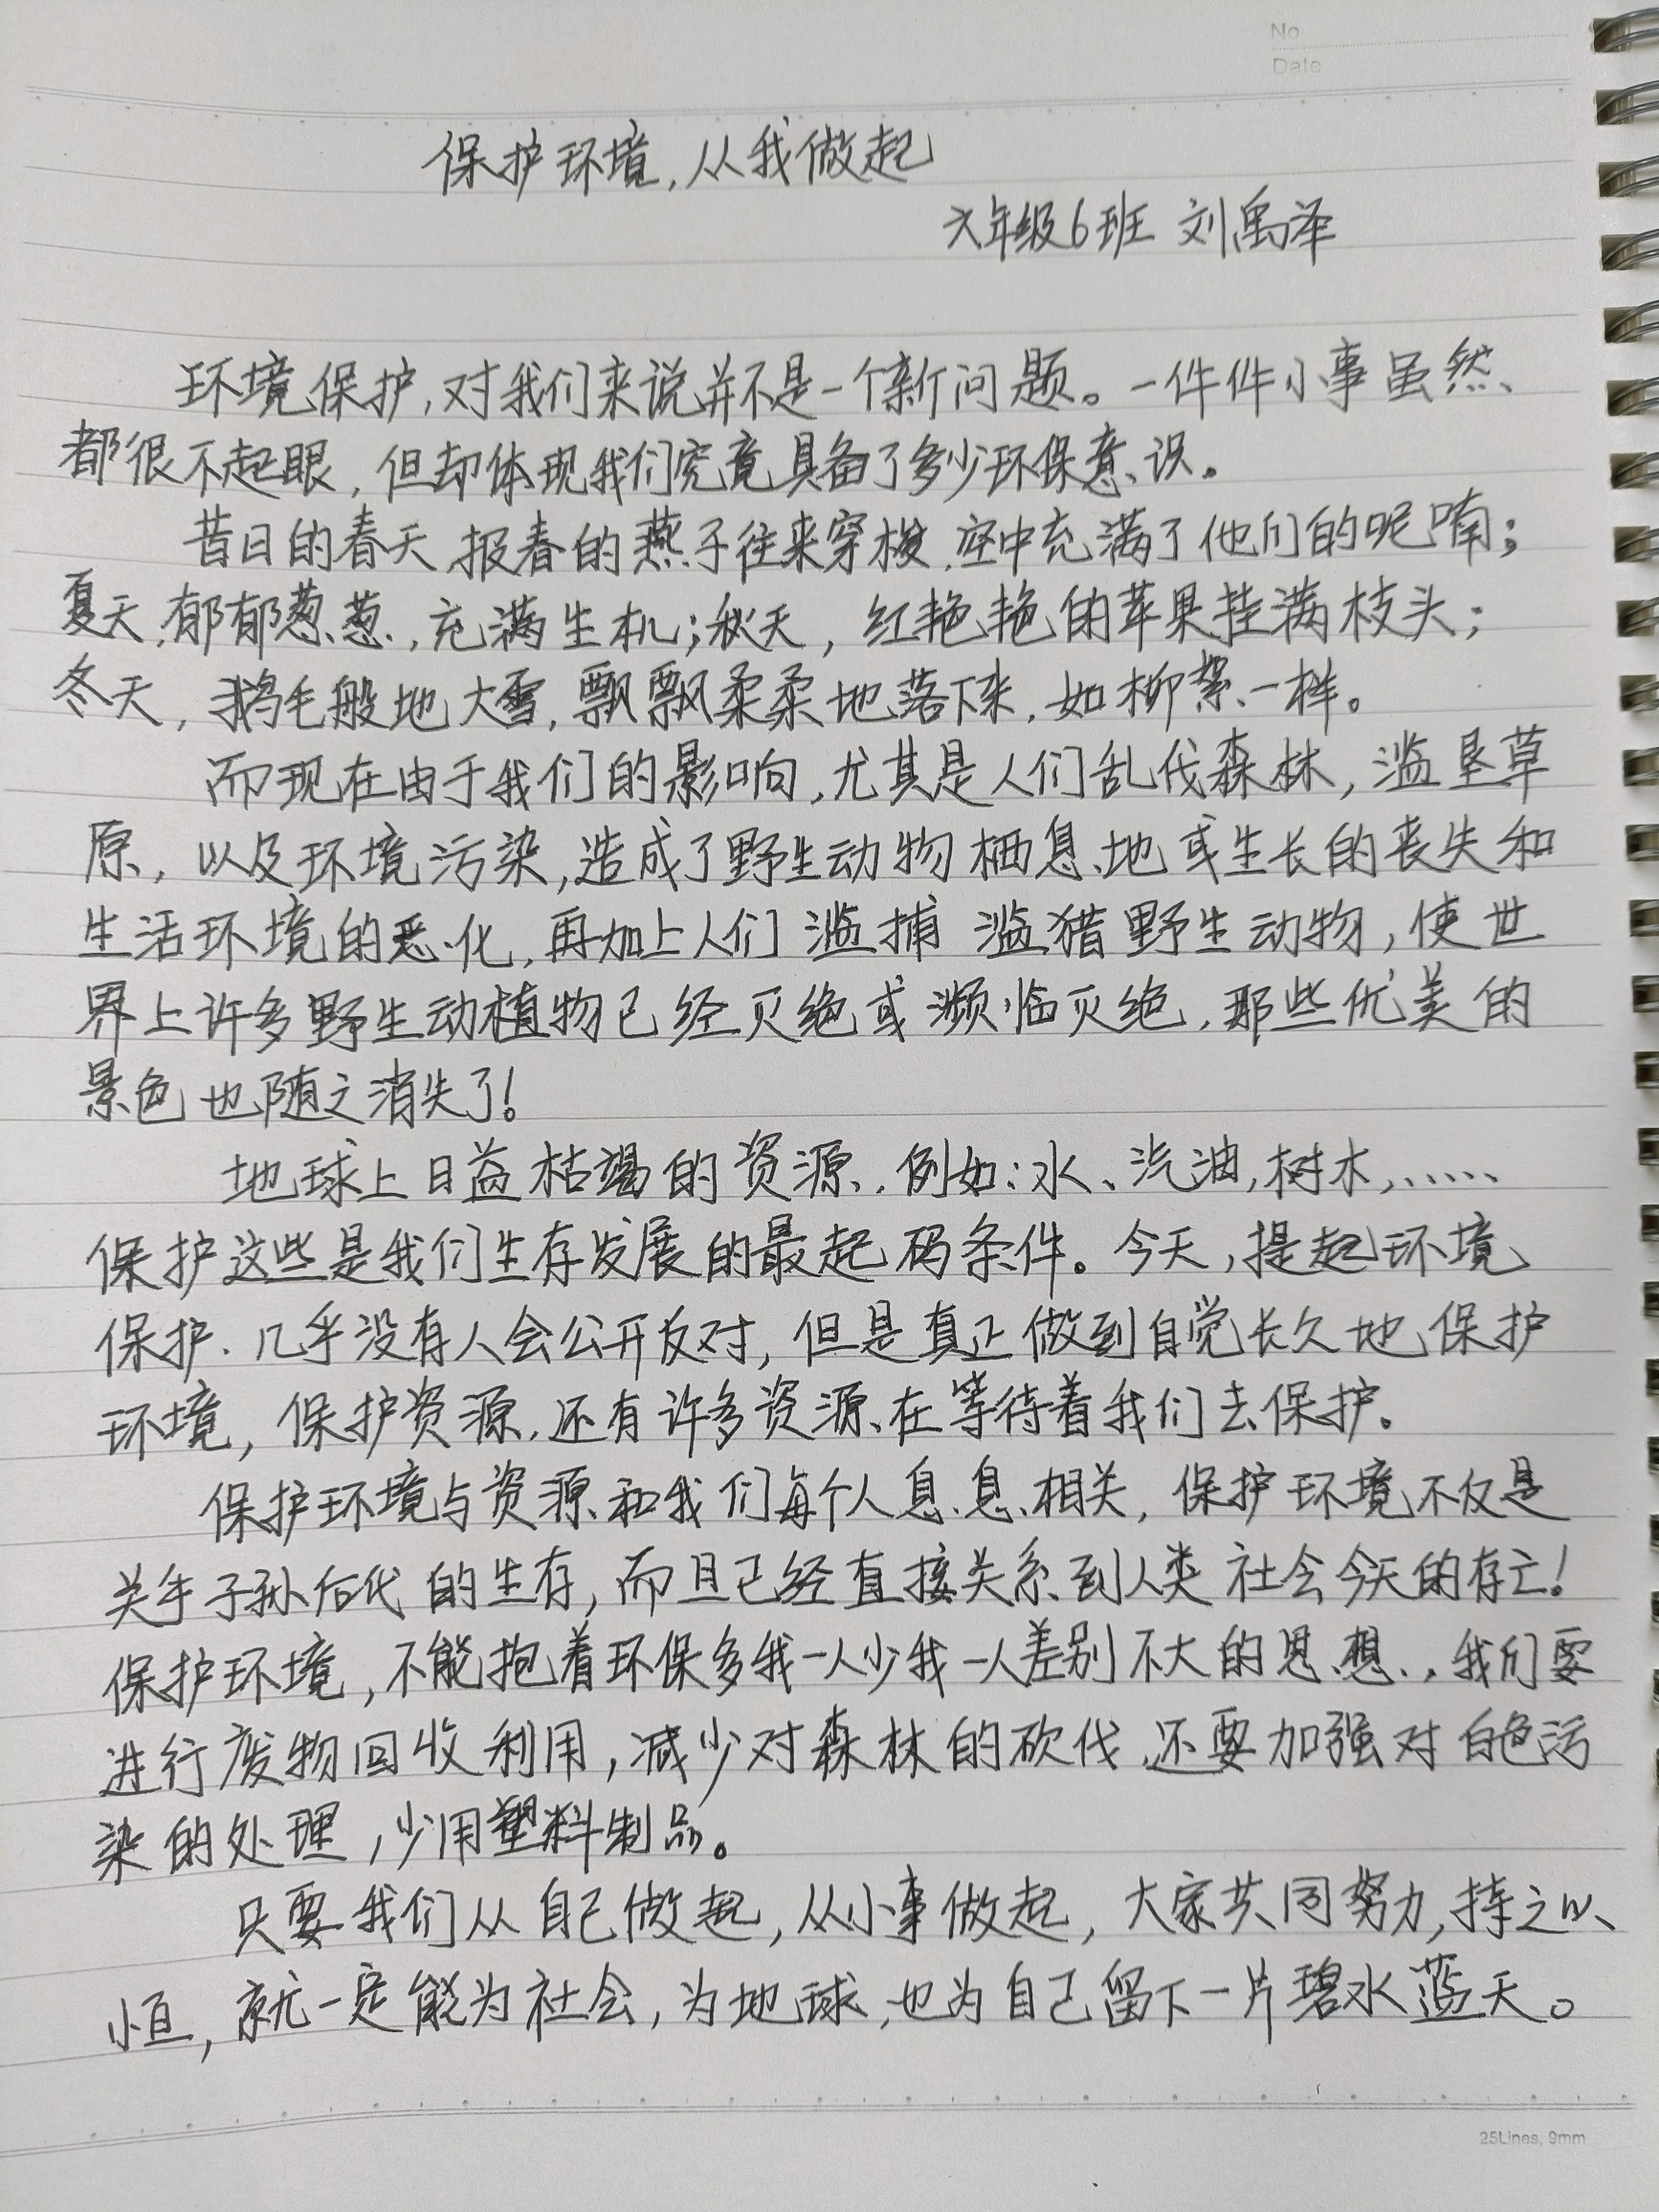 No
Date
保护环境,从我做起
六年级6班 刘禹泽
环境保护,对我们来说并不是一个新问题。一件件小事虽然
都很不起眼,但却体现我们究竟具备了多少环保意识。
昔日的春天,报春的燕子往来穿梭,空中充满了他们的呢喃;
夏天,郁郁葱葱,充满生机;秋天,红艳艳的苹果挂满枝头;
冬天,鹅毛般地大雪,飘飘柔柔地落下来,如柳絮一样。
而现在由于我们的影响,尤其是人们乱伐森林,滥垦草
原,以及环境污染,造成了野生动物栖息地或生长的丧失和
生活环境的恶化,再加上人们滥捕滥猎野生动物,使世
界上许多野生动植物已经灭绝或濒临灭绝,那些优美的
景色也随之消失了!
地球上日益枯竭的资源,例如:水、汽油,树木,……
保护这些是我们生存发展的最起码条件。今天,提起环境
保护,几乎没有人会公开反对,但是真正做到自觉长久地保护
环境,保护资源,还有许多资源在等待着我们去保护。
保护环境与资源和我们每个人息息相关,保护环境不仅是
关乎子孙后代的生存,而且已经直接关系到人类社会今天的存亡!
保护环境,不能抱着环保多我一人少我一人差别不大的思想,我们要
进行废物回收利用,减少对森林的砍伐,还要加强对白色污
染的处理,少用塑料制品。
只要我们从自己做起,从小事做起,大家共同努力,持之以
恒,就一定能为社会,为地球,也为自己留下一片碧水蓝天。
25Lines, 9mm